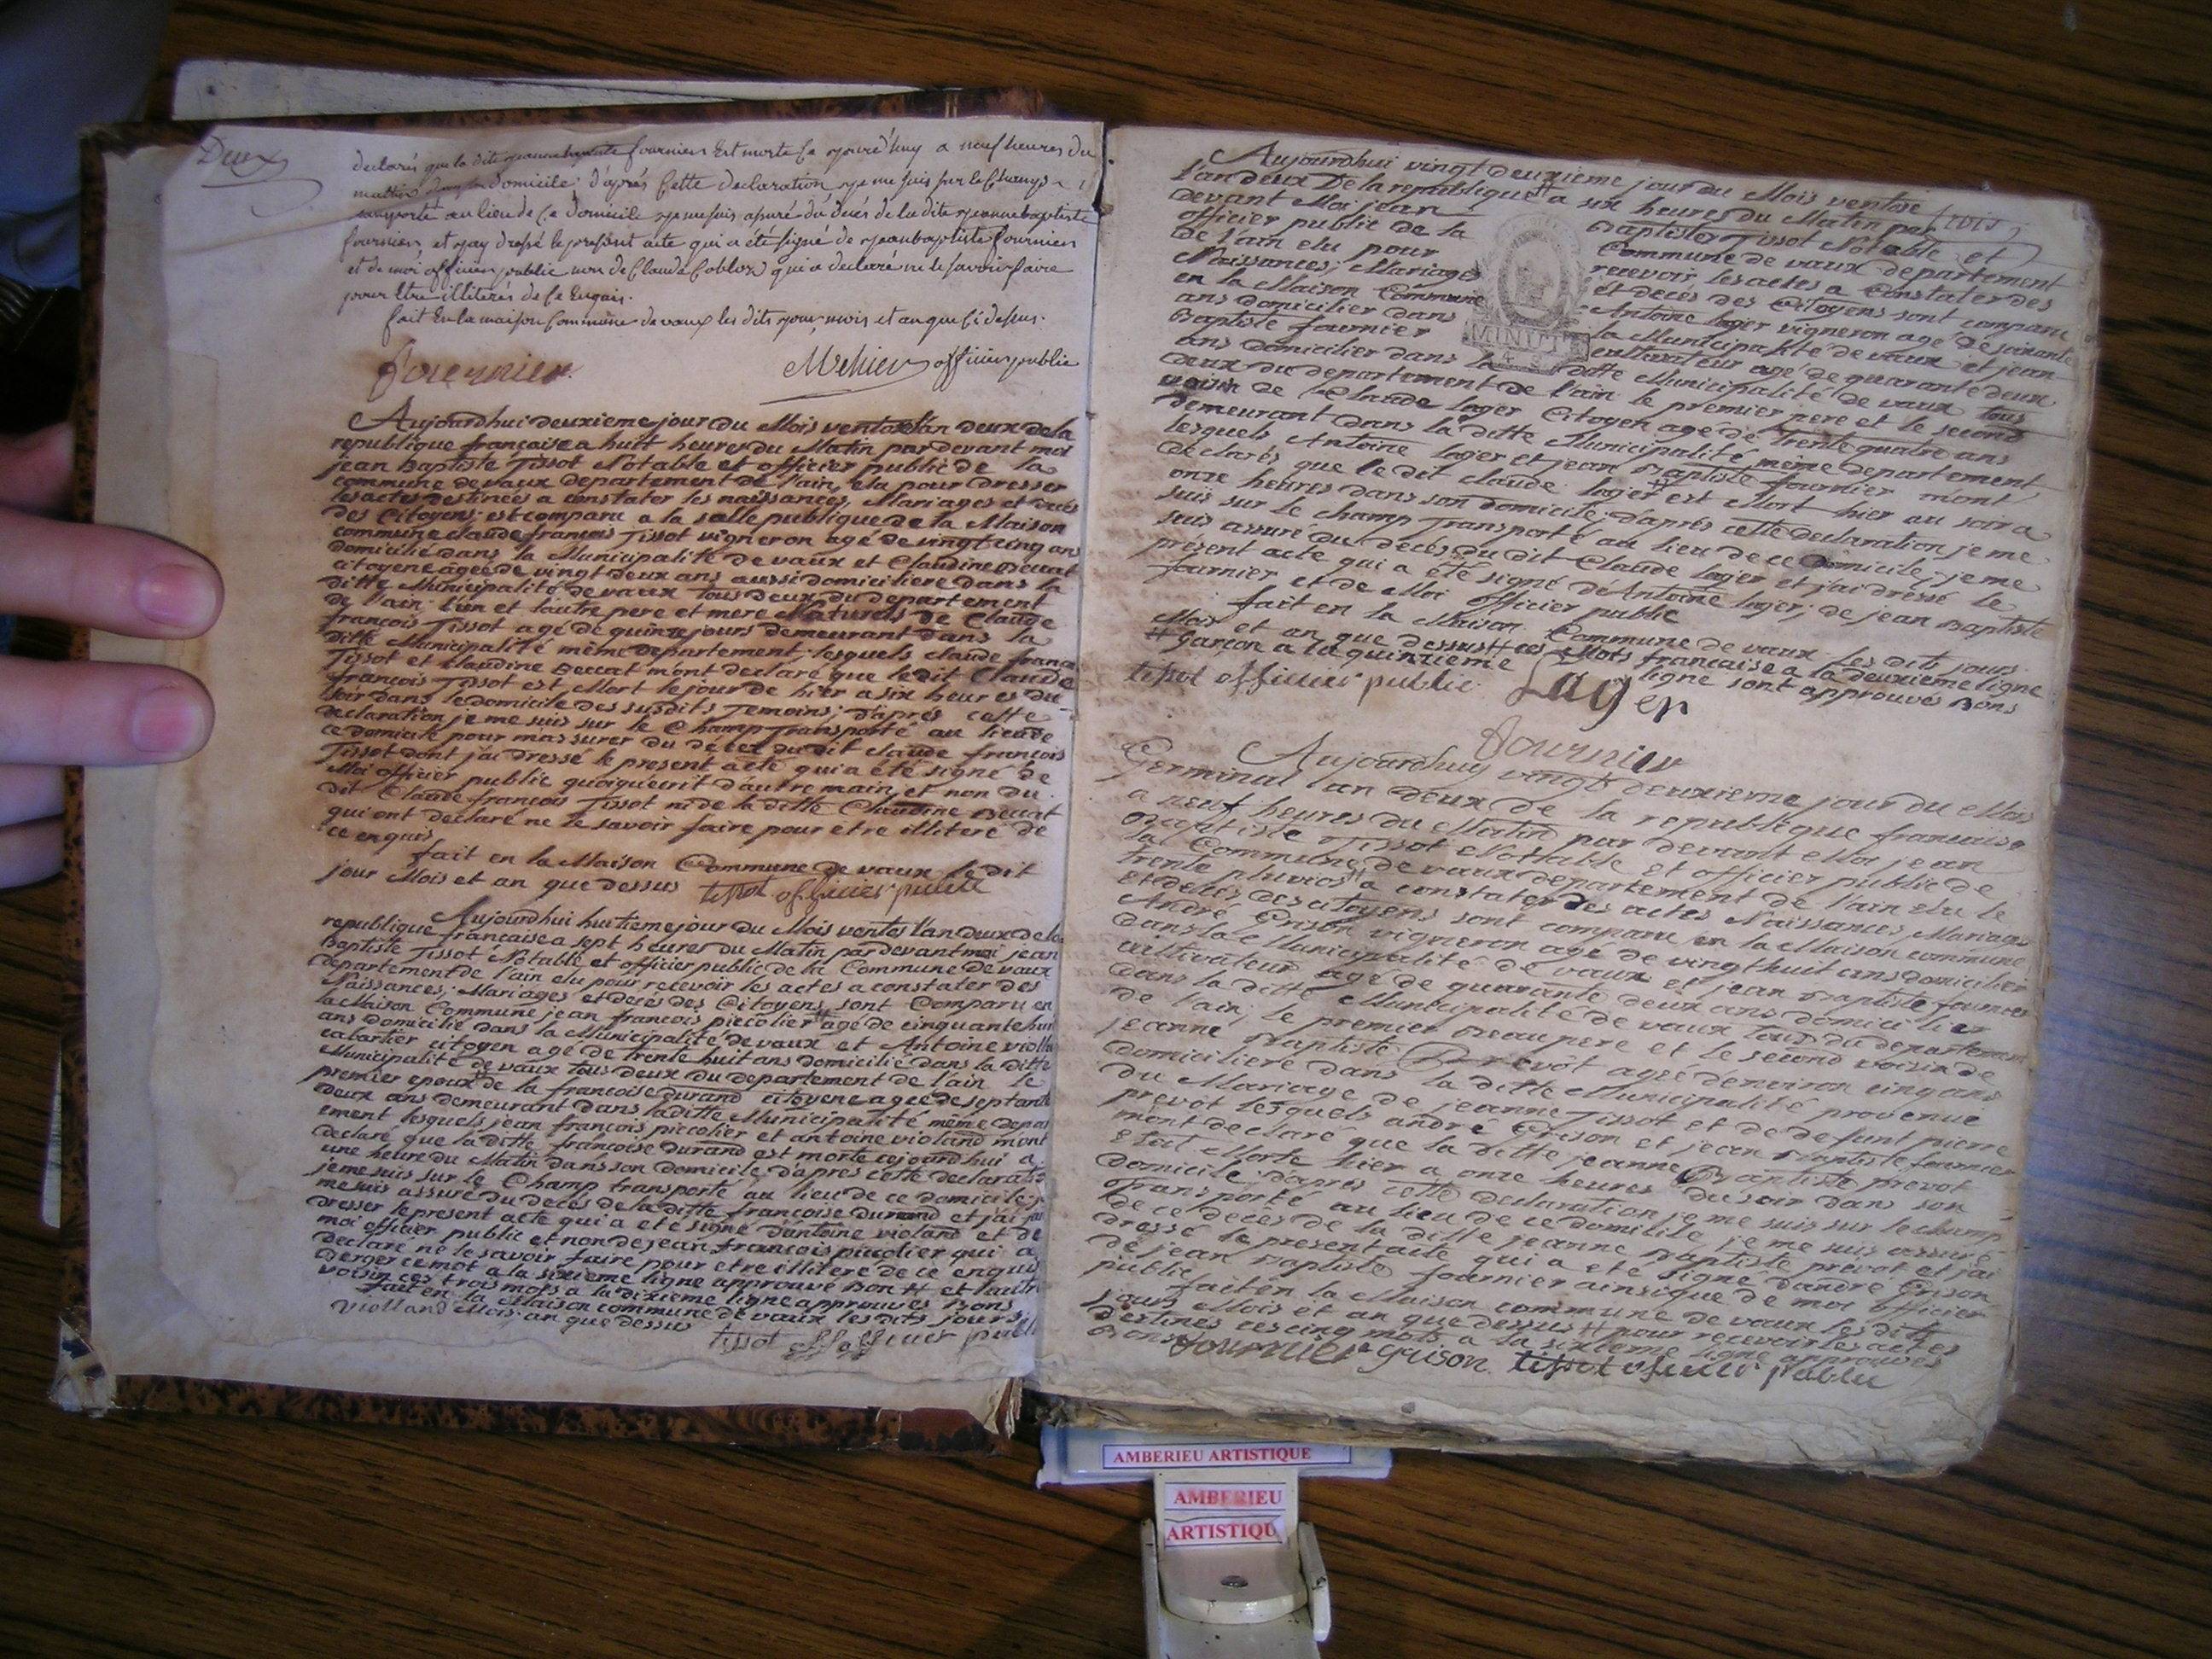 Deux
declarés que la dite jeanne baptiste fournier Est morte Ce jourd'huy a neuf heures du
matin dans son domicile; d'après Cette declaration je me suis sur le Champ
transporté au lieu de Ce domicile je me suis assuré du decés de la dite jeanne baptiste
fournier, et j'ay dressé le present acte qui a été signé de jean baptiste fournier
et de moi officier public non de Claude Coblod qui a declaré ne le savoir faire
pour Etre illiteré de Ce Enquis.
fait En la maison Commune de vaux les dits jour, mois et an que Ci dessus.
fournier
officier public
Aujourdhui deuxieme jour du Mois ventos l'an deux de la
republique française a huit heures du Matin par devant moi
jean Baptiste Tissot Notable et officier public de la
commune de vaux departement de l'ain, elu pour dresser
les actes destinées a constater les naissances, Mariages et decés
des Citoyens; est comparu a la salle publique de la Maison
commune claude françois Tissot vigneron agé de vingt cinq ans
domicilié dans la Municipalité de vaux et Claudine Beccat
citoyene ageé de vingt deux ans aussi domiciliere dans la
ditte Municipalité de vaux tous deux du departement
de l'ain; l'un et l'autre pere et mere Naturels de Claude
françois Tissot agé de quinze jours demeurant dans la
ditte Municipalité même departement; lesquels claude franço
Tissot et Claudine Beccat m'ont declaré que le dit Claude
françois Tissot est Mort le jour de hier a six heures du
soir dans le domicile des susdits Temoins; d'après cette
declaration je me suis sur le Champ transporté au lieu de
ce domicile pour m'assurer du décés du dit claude françois
Tissot dont j'ai dressé le present acte qui a été signé de
Moi officier public quoiqu'ecrit d'autre main, et non du
dit Claude françois Tissot ni de la ditte Claudine Beccat
qui ont declaré ne le savoir faire pour etre illiteré de
ce enquis
fait en la Maison Commune de vaux le dit
jour Mois et an que dessus tissot officier public
Aujourdhui huitieme jour du Mois ventos l'an deux de la
republique française a sept heures du Matin par devant moi jean
Baptiste Tissot Notable et officier public de la Commune de vaux
departement de l'ain elu pour recevoir les actes a constater des
Naissances, Mariages et decés des Citoyens sont Comparu en
la Maison Commune jean françois piccolier # agé de cinquante huit
ans domicilié dans la Municipalité de vaux et Antoine violla
cabartier citoyen agé de trente huit ans domicilié dans la ditte
Municipalité de vaux tous deux du departement de l'ain le
premier epoux # de la françoise durand citoyene ageé de septante
deux ans demeurant dans la ditte Municipalité même depar
ement lesquels jean françois piccolier et antoine violand m'ont
declaré que la ditte françoise durand est morte cejourdhui a
une heure du Matin dans son domicile; d'après cette declaratio
je me suis sur le Champ transporté au lieu de ce domicile; je
me suis assuré du decés de la ditte françoise durand et j'ai fai
dresser le present acte qui a eté signé d'antoine violand et de
moi officier public et non de jean françois piccolier qui a
declaré ne le savoir faire pour etre illiteré de ce enquis
berger ce mot a la sixieme ligne approuvé Bon # et l'autre
voisin ces trois mots a la dixieme ligne approuvés Bons
fait en la Maison commune de vaux les dits jours
violland Mois, an que dessus
tissot officier publi
trois
Aujourdhui vingt deuxieme jour du Mois ventose
l'an deux De la republique # a six heures du Matin par
devant Moi jean Baptiste Tissot Notable et
officier public de la Commune de vaux departement
de l'ain elu pour recevoir les actes a Constater des
Naissances; Mariages et decés des Citoyens sont comparu
en la Maison Commune Antoine lager vigneron agé de soixante
ans domicilier dans la Municipalité de vaux et jean
Baptiste fournier cultivateur agé de quarante deux
ans domicilier dans la ditte Municipalité de vaux tous
deux du departement de l'ain le premier pere et le second
voisin de Claude lager Citoyen agé de trente quatre ans
demeurant dans la ditte Municipalité même departement,
lesquels Antoine lager et jean Baptiste fournier m'ont
declarés que le dit claude lager # est Mort hier au soir a
onze heures dans son domicile; d'après cette declaration je me
suis sur le champ Transporté au lieu de ce domicile; je me
suis assuré du decès du dit Claude lager et j'ai dressé le
présent acte qui a été signé d'Antoine lager; de jean Baptiste
fournier et de Moi officier public
fait en la Maison Commune de vaux les dits jours
Mois et an que dessus # ces Mots française a la deuxieme ligne
# garçon a la quinzieme ligne sont approuvés Bons
tissot officier public Lager
fournier
MINUTE
Aujourdhuy vingt deuxieme jour du Mois
Germinal l'an deux de la republique française
a neuf heures du Matin par devant Moi jean
Baptiste Tissot Notable et officier public de
la Commune de vaux departement de l'ain elu le
trente pluvios # a constater des actes Naissances, Mariages
et decés des citoyens sont comparu en la Maison commune
André Grison vigneron agé de vingt huit ans domicilier
dans la Municipalité de vaux et jean Baptiste fournier
cultivateur agé de quarante deux ans domicilier
dans la ditte Municipalité de vaux tous du departement
de l'ain; le premier Beaupere et le second voisin de
jeanne Baptiste Prevôt ageé d'environ cinq ans
domiciliere dans la ditte Municipalité provenue
du Mariage de jeanne Tissot et de defunt pierre
prevôt lesquels andré Grison et jean Baptiste fournier
m'ont declaré que la ditte jeanne Baptiste prevôt
etoit Morte hier a onze heures du soir dans son
domicile; d'après cette declaration je me suis sur le champ
Transporté au lieu de ce domicile je me suis assuré
de ce decès de la ditte jeanne Baptiste prevôt et j'ai
dressé le present acte qui a eté signé d'andré Grison
de jean Baptiste fournier ainsi que de moi officier
public
fait en la Maison commune de vaux les dits
jours Mois et an que dessus # pour recevoir les actes
destinés ces cinq mots a la sixieme ligne approuvés
Bons fournier grison tissot officier public
AMBERIEU ARTISTIQUE
AMBERIEU
ARTISTIQU